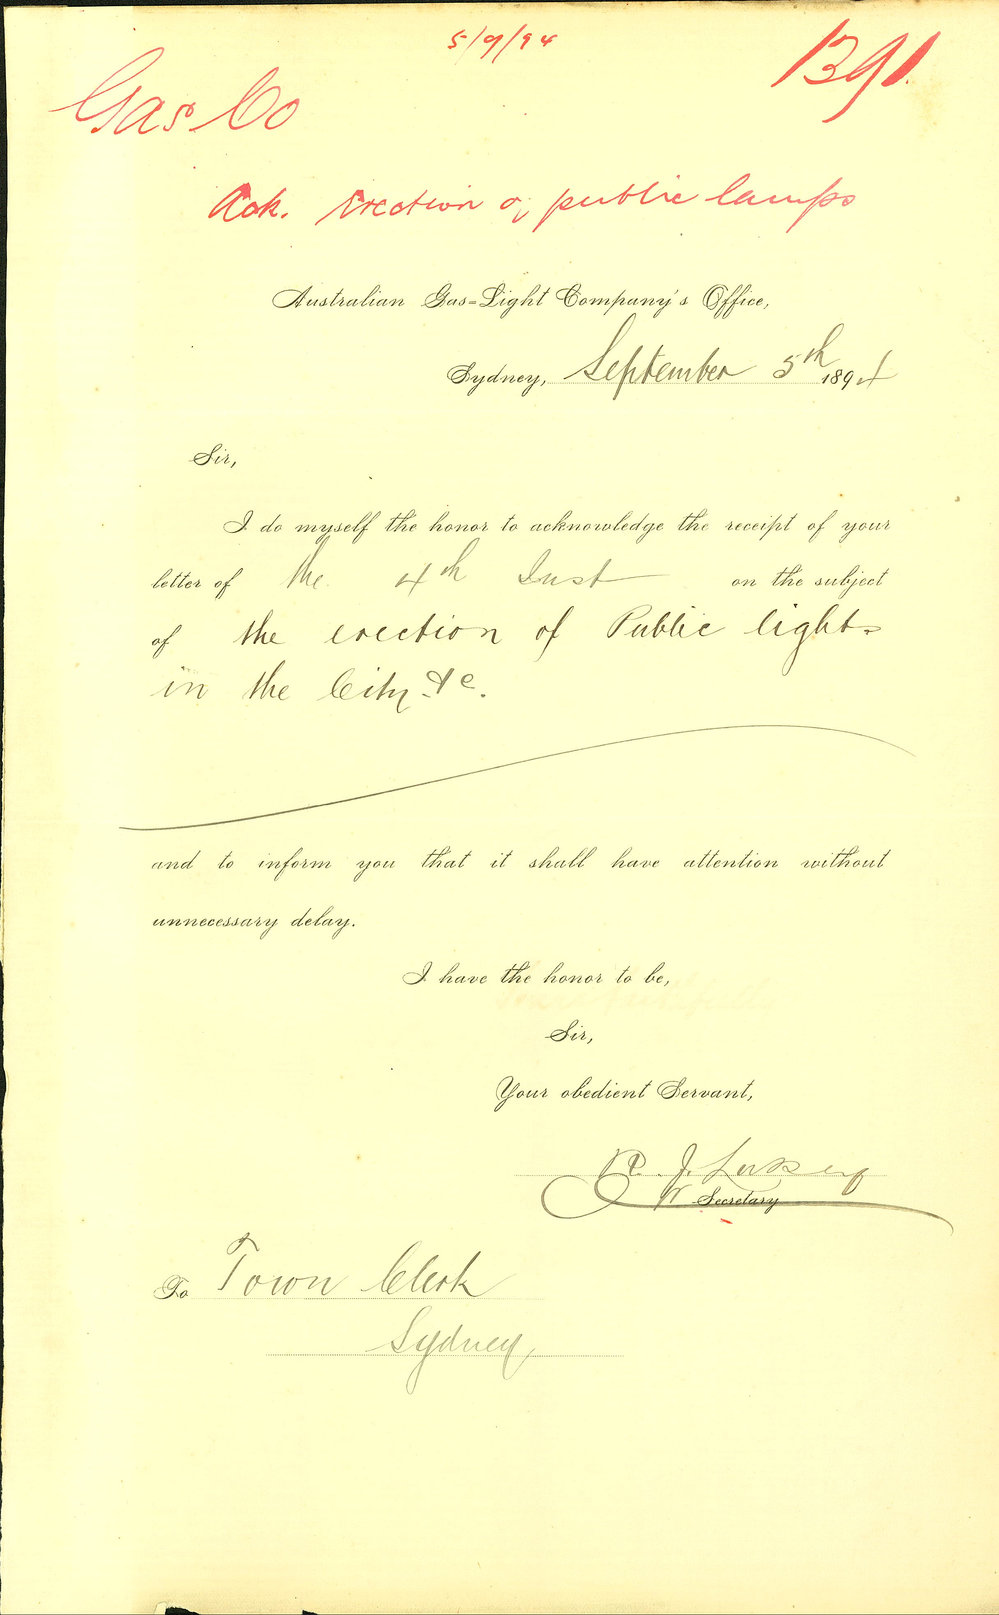 5/9/94
1391.
Gas Co
Ack. Erection of public lamps
Australian Gas-Light Company's Office,
Sydney, September 5th 1894
Sir,
I do myself the honor to acknowledge the receipt of your
letter of the 4th Inst on the subject
of the erection of Public lights
in the City &c.
and to inform you that it shall have attention without
unnecessary delay.
I have the honor to be,
Sir,
Your obedient Servant,
R. J.
Secretary
To Town Clerk
Sydney,